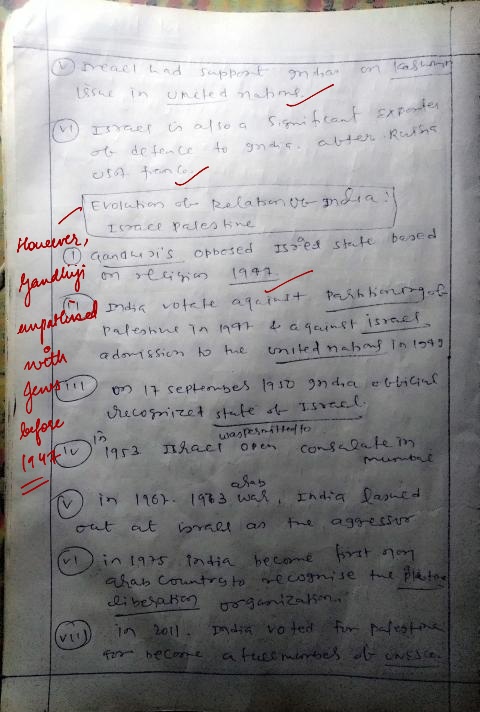 (v) Isreal had support Indias on Kashmir
issue in United nations.
(vi) Israel is also a significant exporter
of defence to India. abter Russia
USA france.
Evolution of Relation of India:
Israel Palestine
(i) Gandhiji's opposed Israel state based
on religion 1947.
(ii) India votate against Partitioning of
Palestine in 1947 & against israel
admission to the united nations in 1949
(iii) on 17 september 1950 India official
recognized state of Israel.
was permitted to
(iv) in 1953 Israel open consulate in
mumbai
arab
(v) in 1967. 1973 war, India lashed
out at israel as the aggressor
(vi) in 1975 india become first non
arab country to recognise the
liberation organization.
(vii) in 2011. India voted for palestine
for become a full member of unesco.
However,
Gandhiji
empathised
with
Jews
before
1947